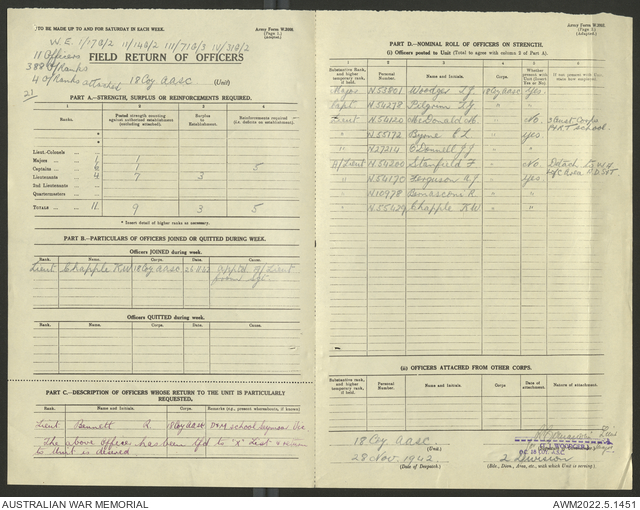 (TO BE MADE UP TO AND FOR SATURDAY IN EACH WEEK.
Army Form W.3008.
(Page 1.)
(Adapted).
W.E. 1/17B/2 11/14B/2 111/71B/3 IV/31B/2
11 Officers
388 O/Ranks
4 O/Ranks attached
FIELD RETURN OF OFFICERS
18 Coy AASC (Unit)
21
PART A.—STRENGTH, SURPLUS OR REINFORCEMENTS REQUIRED.
1 2 3 4
Ranks. Posted strength counting against authorised establishment (excluding attached). Surplus to Establishment. Reinforcements required (i.e. deficits on establishment).
Lieut.-Colonels
Majors 1 1
Captains 6 1 5
Lieutenants 4 7 3
2nd Lieutenants
Quartermasters
TOTALS 11 9 3 5
* Insert detail of higher ranks as necessary.
PART B.—PARTICULARS OF OFFICERS JOINED OR QUITTED DURING WEEK.
Officers JOINED during week.
Rank. Name. Corps. Date. Cause.
Lieut Chapple R W 18 Coy AASC Appt'd T/Lieut
from Sgt
Officers QUITTED during week.
Rank. Name. Corps. Date. Cause.
PART C.—DESCRIPTION OF OFFICERS WHOSE RETURN TO THE UNIT IS PARTICULARLY REQUESTED.
Rank. Name and Initials. Corps. Remarks (e.g., present whereabouts, if known)
Lieut Bennett R. 18 Coy AASC D&M School Seymour Vic
The above officer has been t/d to "X" List & return
to Unit is desired.
Army Form W.3008.
(Page 2.)
(Adapted).
PART D.—NOMINAL ROLL OF OFFICERS ON STRENGTH.
(i) Officers posted to Unit (Total to agree with column 2 of Part A).
1 2 3 4 5 6
Substantive Rank, and higher temporary rank, if held. Personal Number. Name and Initials. Corps. Whether present with Unit (Insert Yes or No). If not present with Unit, state how employed.
Major N53801 Woodger L J 18 Coy AASC Yes.
Capt. N54278 Pilgrim L J " "
Lieut N54120 McDonald A " No.
School.
" N55172 Byrne E L " Yes
" N27214 O'Donnell J J " "
T/Lieut N54200 Stanfield F. " No.
" N54170 Ferguson A J " Yes.
N10978 R. " "
N55629 Chapple R W " "
(ii) OFFICERS ATTACHED FROM OTHER CORPS.
Substantive rank, and higher temporary rank, if held. Personal Number. Name and Initials. Corps. Date of attachment. Nature of attachment.
18 Coy AASC.
(Unit.)
28 Nov. 1942
(Date of Despatch)
Lieut
2 Division
(Bde., Divn., Area, etc., with which Unit is serving.)
AUSTRALIAN WAR MEMORIAL
AWM2022.5.1451